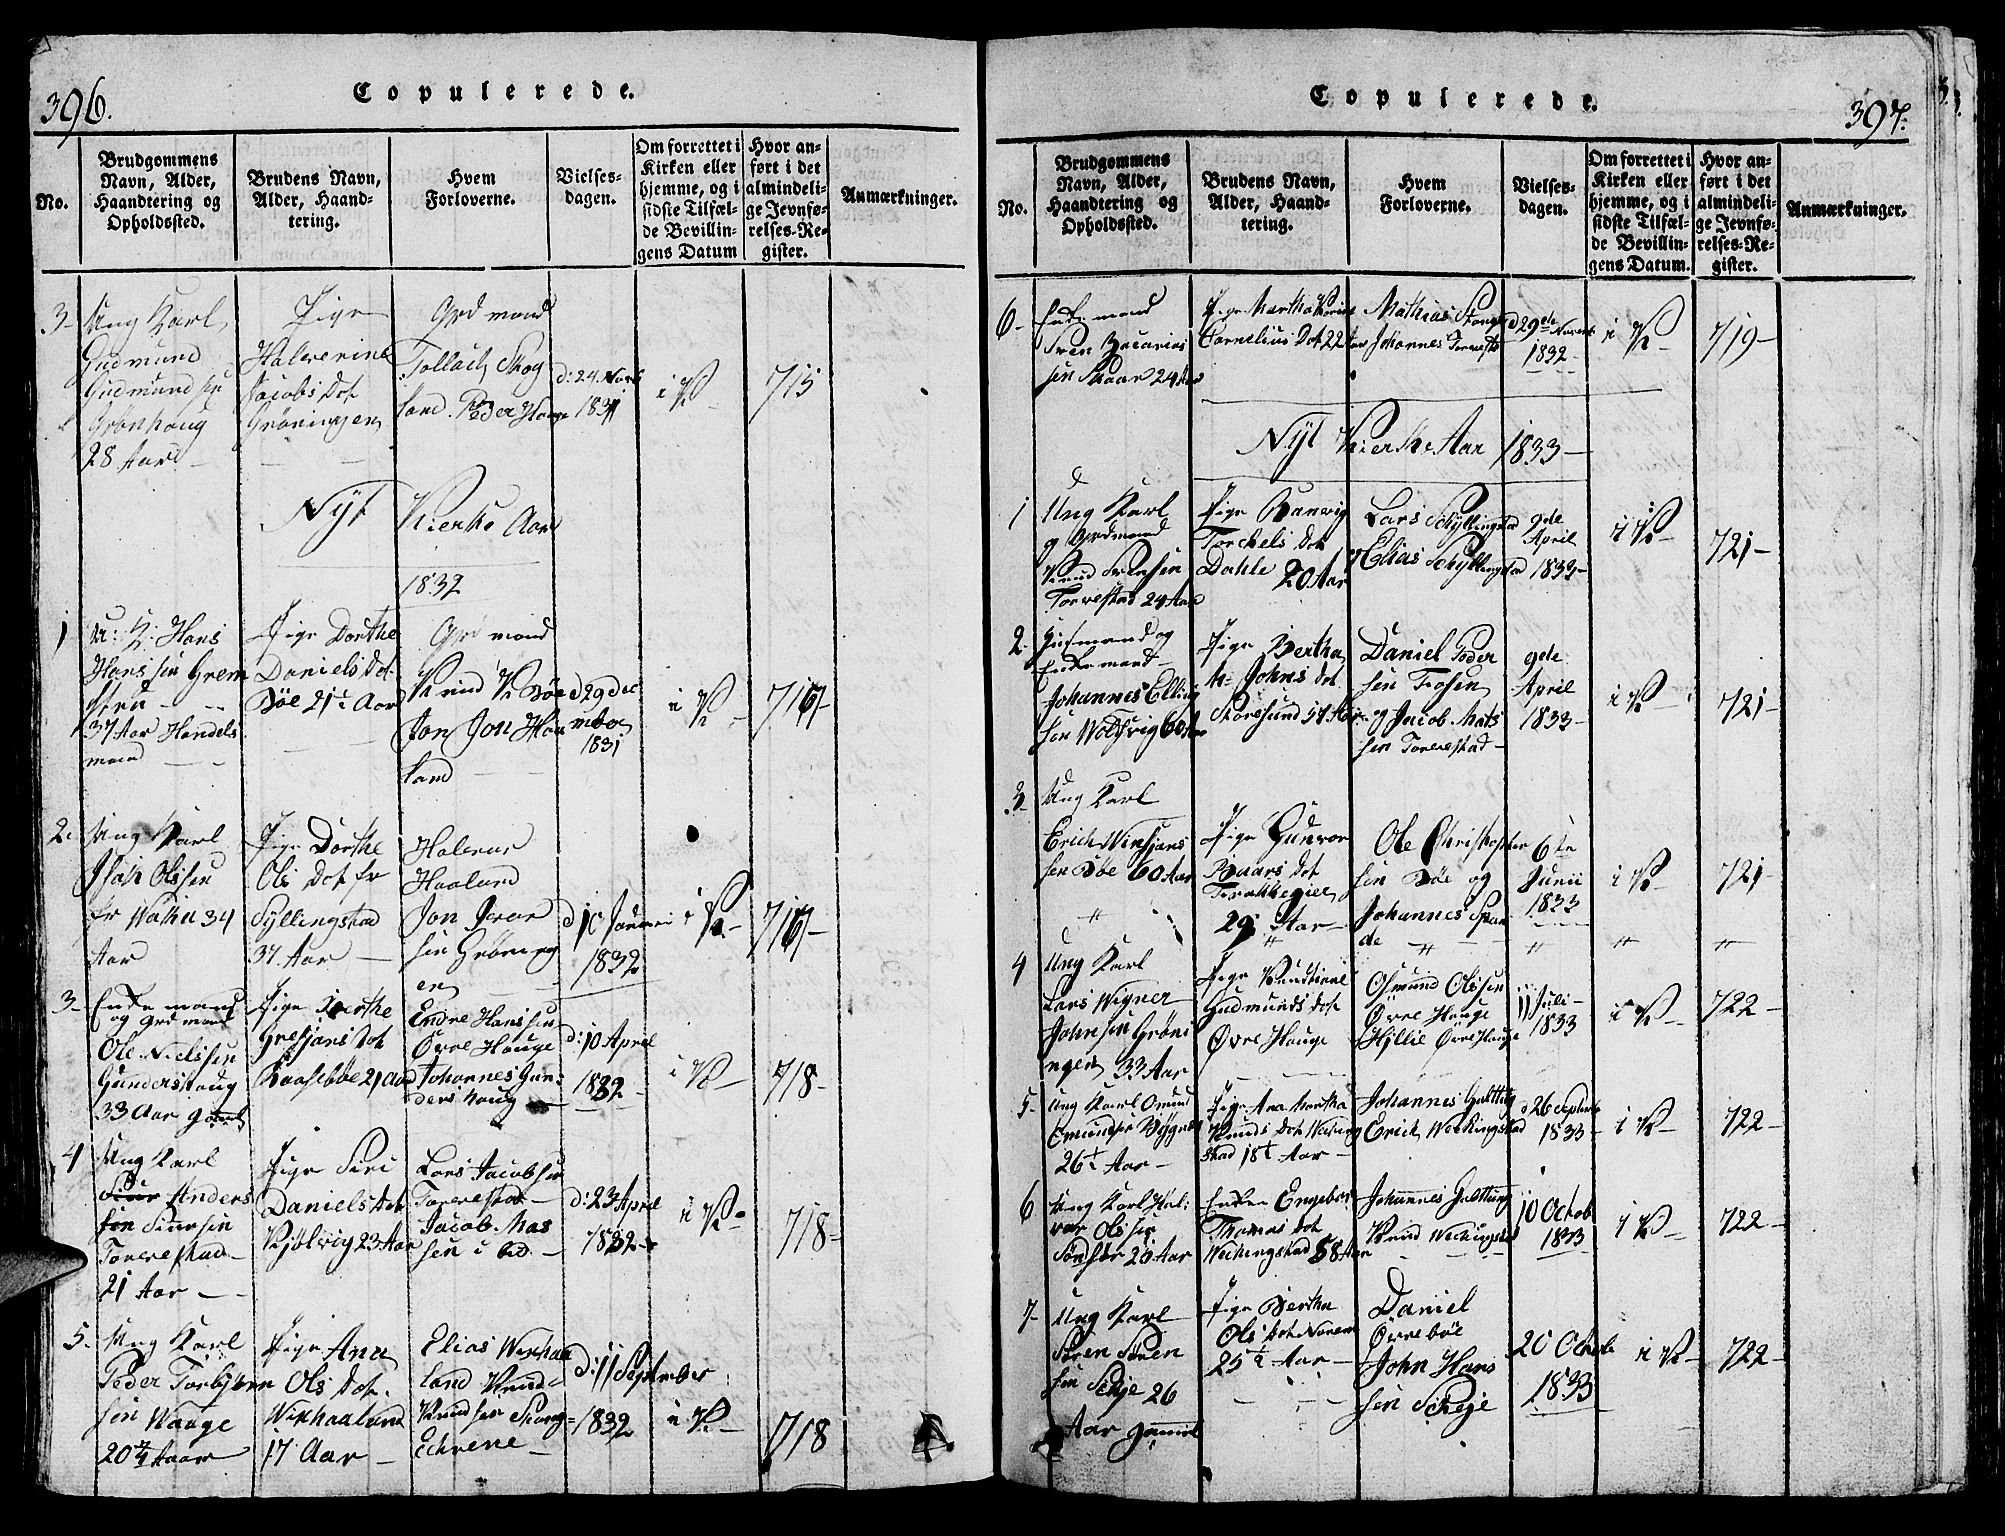 396.
Copulerede.
No.
Brudgommens
Navn, Alder,
Haandtering og
Opholdssted.
Brudens Navn,
Alder, Haand-
tering.
Hvem
Forloverne.
Vielses-
dagen.
Om forrettet i
Kirken eller
hjemme, og i
sidste Tilfæl-
de Bevillin-
gens Datum
Hvor an-
ført i det
almindeli-
ge Jevnfø-
relses-Re-
gister.
Anmærkninger.
3-
Ung Karl
Gudmund
Gudmundsen
Grønhaug
28 Aar
Pige
Halverine
Jacobs Dot
Grøningen
Grdmand
Tollach Skog
land. Peder Hauge
d: 24 Novb
1831
i K-
715
Nyt Kierke Aar
1832
1
U: K: Hans
Hanssen
37 Aar Handels
mand
Pige Dorthe
Daniels Dot
Bøe 21 Aar
Grdmand
Knud K Bøe
Jon Jon
land
d 29 De
mbr
1831
i K-
716-
2.
Ung Karl
Isak Olssen
fr 34
Aar
Pige Dorthe
Ols Dot fr
Syllingstad
37 Aar
Halvor
Haaland
Jon Ivar
sen Grøning
en
1832
i K-
716-
3-
Enkemand
og Grdmand
Ole Nielssen
Gundershaug
33 Aar gaml
Pige
Dot
21 Aar
Endre Hanssen
Øvre Hauge
Johannes Gun-
dershaug
d: 10 April
1832
i K-
718-
4
Ung Karl
Anders
sen
Torvestad
21 Aar
Pige Siri
Daniels Dot
Kjølvig 23 Aar
Lars Jacobsen
Torvestad
Jacob Mas
sen i bd
d: 23 April
1832
i K-
718-
5.
Ung Karl
Peder Torbjørn
sen Waage
20 Aar
Pige Ana
Ols Dot
Wikhaaland
17 Aar
Elias Wikhaa
land Knud
Knudsen Stang-
Echrene
d: 11 September
1832
i K-
718
397.
Copulerede.
No.
Brudgommens
Navn, Alder,
Haandtering og
Opholdssted.
Brudens Navn,
Alder, Haand-
tering.
Hvem
Forloverne.
Vielses-
dagen.
Om forrettet i
Kirken eller
hjemme, og i
sidste Tilfæl-
de Bevillin-
gens Datum.
Hvor an-
ført i det
almindeli-
ge Jevnfø-
relses-Re-
gister.
Anmærkninger.
6-
Enkemand
Sven Zacarias
sen Skaar 24 Aar
Pige Martha
Cornelius Dot 22 Aar
Mathias Stange
Johannes Torvestad
d 29de Novemb
1832-
i K-
719-
Nyt Kierke Aar 1833-
1
Ung Karl
og Grdmand
Knud
Torvestad 24 Aar
Pige Ranvig
Torchels Dot
Dahle 20 Aar
Lars Schyllingstad
Elias Schyllingstad
9de
April
1833-
i K-
721-
2-
Husmand og
Enkemand
Johannes Elling
sen 60 Aar
Pige Bertha
M: Johns Dot
Storsund
Daniel Peder
sen Fosen
og Jacob Mats
sen Torvestad-
9de
April
1833-
i K-
721-
3-
Ung Karl
Erich
sen Bøe 60 Aar
Pige Gudvor
Baars Dot
29 Aar-
Ole Christopher
sen Bøe og
Johannes Span
de
6te
Junii
1833
i K-
721-
4
Ung Karl
Lars Wigner
Johnsen Grøni
ngen 33 Aar
Pige
Gudmunds Dot
Øvre Hauge
Osmund Olssen
Øvre Hauge
Hjllie Øvre Hauge
11 Juli-
1833
i K-
722-
5-
Ung Karl Omund
26 Aar-
Pige Ana Martha
Knuds Dot
18 Aar-
Johannes Galttung
Erich Weckingstad
d 26 Septembr
1833-
i K-
722-
6
Ung Karl Hal-
vor Olssen
Pige Engebor
Thomas Dot
Weckingstad 58 Aar
Johannes Galttung
Knud Weckingstad
10 Octob
1833
i K-
722-
7-
Ung Karl
Søren Søren
sen Scheje 26
Aar gammel
Pige Bertha
Ols Dot
25 Aar-
Daniel
Øvrebøe
John Hans
sen Scheje
20 Octob
1833
i K-
722-